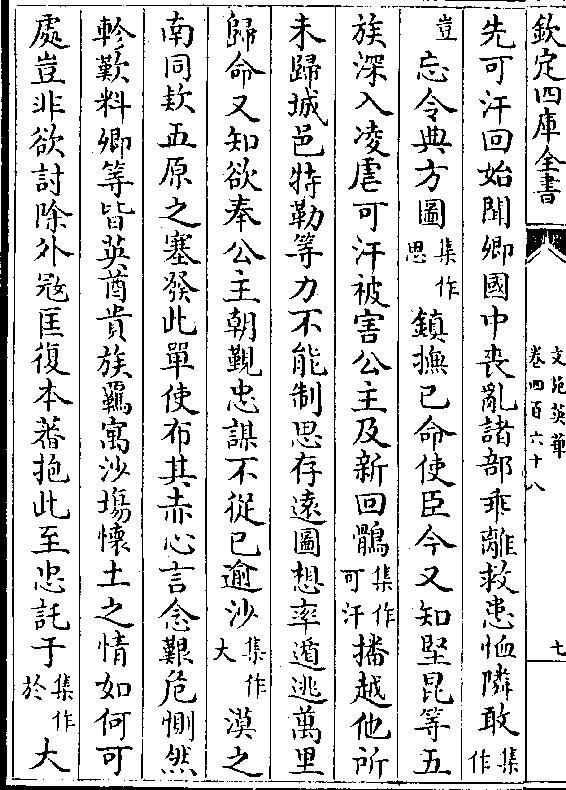 欽定四庫全書
文苑英華
卷四百六十八
七
先可汗回始聞卿國中喪亂諸部乖離救患恤隣敢集作
豈忘令典方圖集作思鎮撫已命使臣今又知堅昆等五
族深入凌虐可汗被害公主及新回鶻集作可汗播越他所
未歸城邑特勒等力不能制思存遠圖想率遁逃萬里
歸命又知欲奉公主朝覲忠謀不從已逾沙集作大漠之
南同欵五原之塞發此單使布其赤心言念艱危惻然
軫歎料卿等皆英酋貴族羈寓沙塲懷土之情如何可
處豈非欲討除外冦匡復本蕃抱此至忠託于集作於大